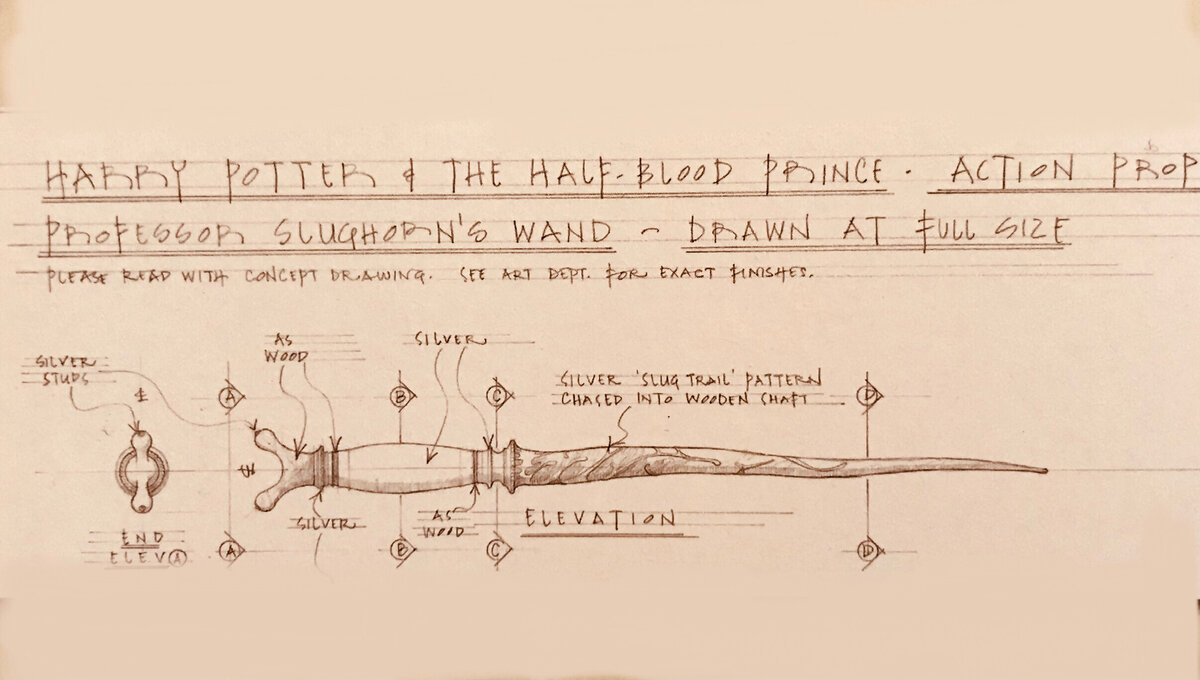 HARRY POTTER & THE HALF-BLOOD PRINCE. ACTION PROP
PROFESSOR SLUGHORN'S WAND - DRAWN AT FULL SIZE
PLEASE READ WITH CONCEPT DRAWING. SEE ART DEPT. FOR EXACT FINISHES.
SILVER
STUDS
AS
WOOD
SILVER
SILVER 'SLUG TRAIL' PATTERN
CHASED INTO WOODEN SHAFT
A
B
C
D
SILVER
AS
WOOD
ELEVATION
END
ELEV A
A
B
C
D